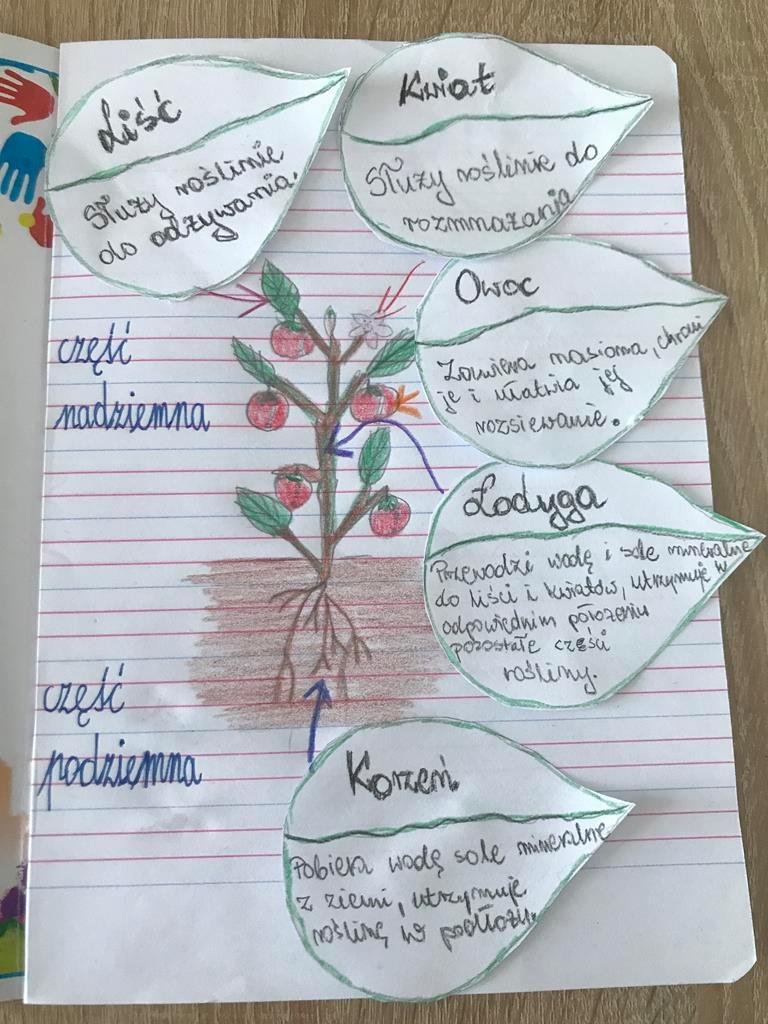 Liść
Służy roślinie
do odżywiania.
Kwiat
Służy roślinie do
rozmnażania
Owoc
Zawiera nasiona, chroni
je i ułatwia jej
rozsiewanie.
część
nadziemna
Łodyga
Przewodzi wodę i sole mineralne
do liści i kwiatów, utrzymuje w
odpowiednim położeniu
pozostałe części
rośliny.
część
podziemna
Korzeń
Pobiera wodę sole mineralne
z ziemi, utrzymuje
roślinę w podłożu.